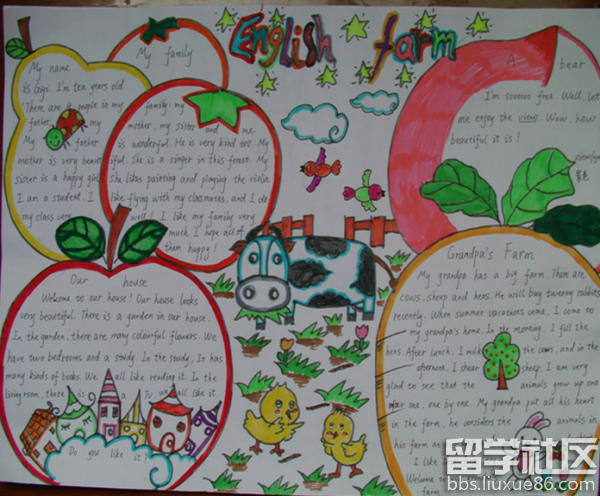 English farm
My family
My name
is Gigi. I'm ten years old
There are 4 people in my family: my
father, my mother, my sister and me.
My father is wonderful. He is very kind too. My
mother is very beautiful. She is a singer in this forest. My
sister is a happy girl. She likes painting and playing the violin
I am a student. I like flying with my classmates, and I do
my class very well! I like my family very
much. I hope all of
them happy!
A bear
I'm sooooo free. Well, let
me enjoy the view. Wow, how
beautiful it is!
景色
Our house
Welcome to our house! Our house looks
very beautiful. There is a garden in our house.
In the garden, there are many colourful flowers. We
have two bedrooms and a study. In the study, It has
many kinds of books. We all like reading it. In the
living room, there is a TV, we all like it.
Do you like it?
Grandpa's Farm
My grandpa has a big farm. There are
cows, sheep and hens. He will buy twenty rabbits
recently. When summer vacations come, I come to
my grandpa's home. In the morning, I fill the
hens. After lunch, I milk the cows, and in the
afternoon, I shear sheep. I am very
glad to see that the animals grow up one
after one, one by one. My grandpa put all his heart
in the farm, he considers the animals in
his farm as
I like t
Welcome to
留学社区
bbs.liuxue86.com